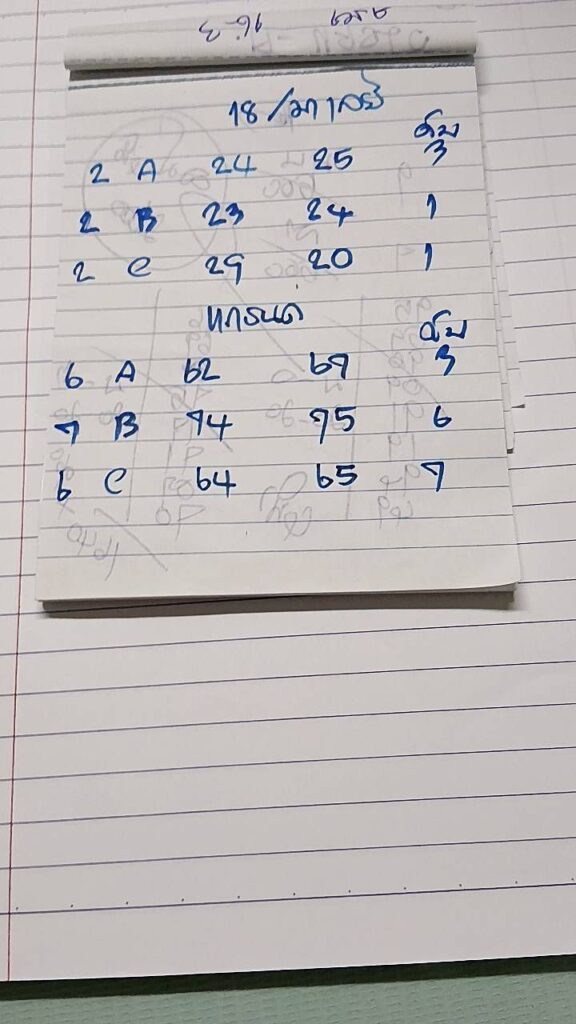 18/มาเลย์
ดับ
2 A 24 25 3
2 B 23 24 1
2 C 29 20 1
ดับ
6 A 62 69 3
7 B 74 75 6
6 C 64 65 7